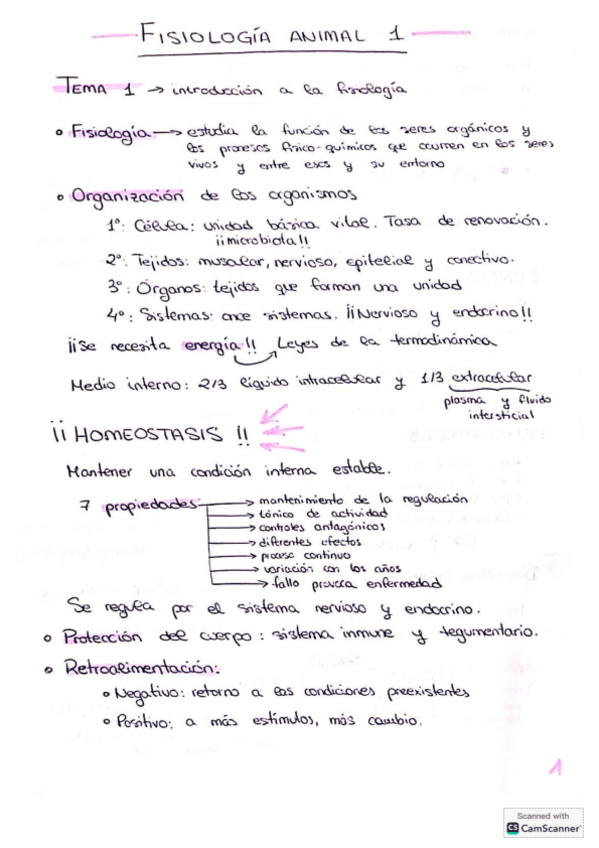 FISIOLOGÍA ANIMAL 1
TEMA 1 → introducción a la fisiología
• Fisiología → estudia la función de los seres orgánicos y
los procesos físico-químicos que ocurren en los seres
vivos y entre esos y su entorno
• Organización de los organismos
1º: Célula: unidad básica vital. Tasa de renovación.
¡¡microbiota!!
2º: Tejidos: muscular, nervioso, epitelial y conectivo.
3º: Órganos: tejidos que forman una unidad
4º: Sistemas: once sistemas. ¡¡Nervioso y endocrino!!
¡¡Se necesita energía!! Leyes de la termodinámica
Medio interno: 2/3 líquido intracelular y 1/3 extracelular
plasma y fluido
intersticial
¡¡ HOMEOSTASIS !!
Mantener una condición interna estable.
7 propiedades → mantenimiento de la regulación
→ tónico de actividad
→ controles antagónicos
→ diferentes efectos
→ proceso continuo
→ variación con los años
→ fallo provoca enfermedad
Se regula por el sistema nervioso y endocrino.
• Protección del cuerpo: sistema inmune y tegumentario.
• Retroalimentación:
• Negativo: retorno a las condiciones preexistentes
• Positivo: a más estímulos, más cambio.
1
Scanned with
CS CamScanner